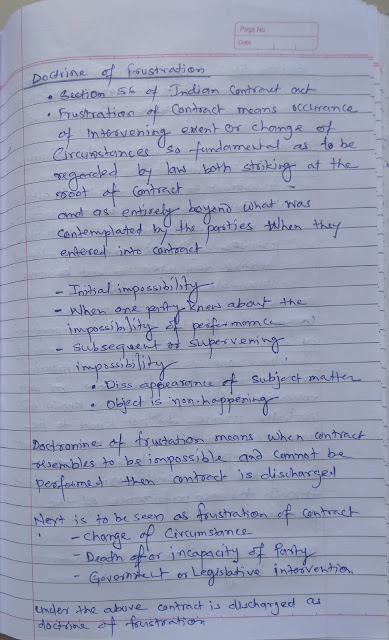 Page No.
Date
Doctrine of frustration
• Section 56 of Indian Contract act
• Frustration of Contract means occurance
of Intervening event or change of
Circumstances so fundamental as to be
regarded by law both striking at the
root of Contract
and as entirely beyond what was
contemplated by the parties when they
entered into contract
- Initial impossibility
- When one party knew about the
impossibility of performance
- Subsequent or supervening
impossibility
• Diss appearance of subject matter
• Object is non-happening
Doctronine of frustation means when contract
resembles to be impossible and cannot be
performed then contract is discharged
Next is to be seen as frustration of contract
- Change of Circumstance
- Death of or incapacity of Party
- Government or Legislative intervention
under the above contract is discharged as
doctrine of frustration